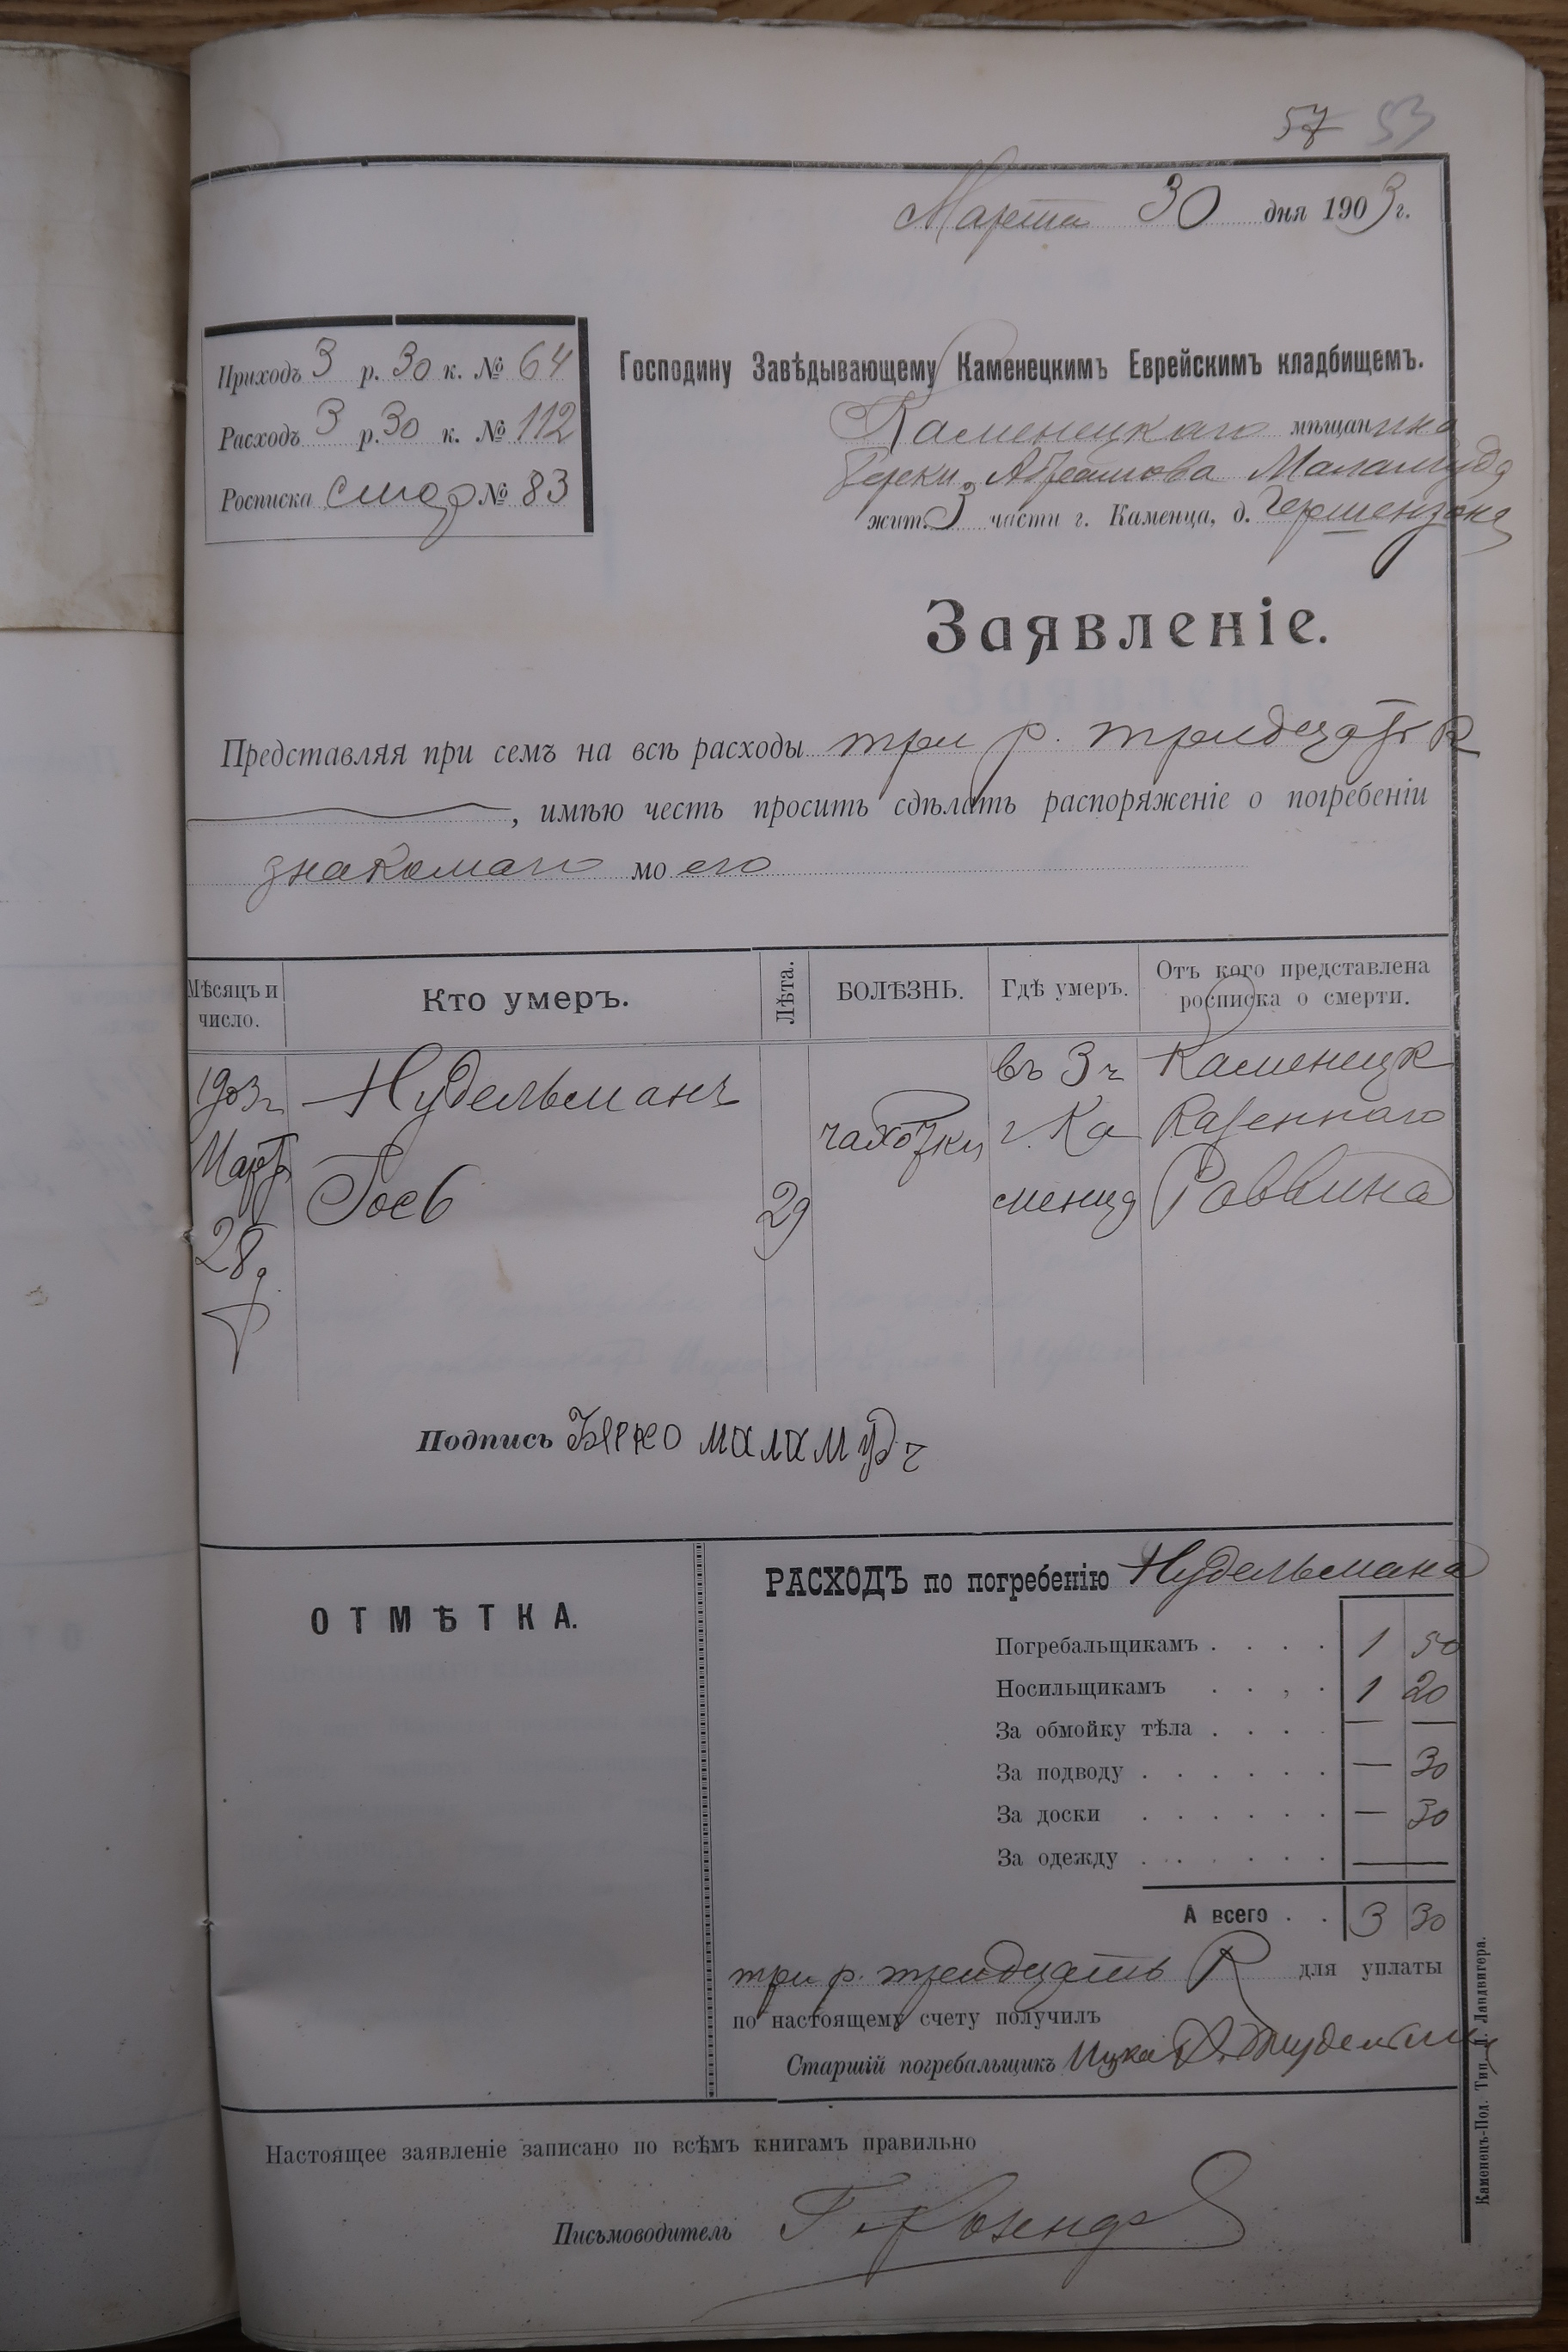 57 53
Марта 30 дня 1903 г.
Приходъ 3 р. 30 к. № 64
Расходъ 3 р. 30 к. № 112
Росписка № 83
Господину Завѣдывающему Каменецкимъ Еврейскимъ кладбищемъ.
Каменецкаго мѣщанина
Берки Абрамова Маламуда
жит. 3 части г. Каменца, д. Гершензона
Заявленіе.
Представляя при семъ на всѣ расходы три р. тридцать к
, имѣю честь просить сдѣлать распоряженіе о погребеніи
знакомаго моего
Мѣсяцъ и число. Кто умеръ. Лѣта. БОЛѢЗНЬ. Гдѣ умеръ. Отъ кого представлена росписка о смерти.
1903 г Нудельманъ въ 3 ч Каменецк
Март чахотки г. Ка Казеннаго
28 д 29 менца Раввина
Подпись Бярко маламуд
ОТМѢТКА.
РАСХОДЪ по погребенію Нудельмана
Погребальщикамъ . . . . 1 50
Носильщикамъ . . , . 1 20
За обмойку тѣла . . . . — —
За подводу . . . . . . — 30
За доски . . . . . . — 30
За одежду . . . . . . —
А всего . . 3 30
три р. тридцать к для уплаты
по настоящему счету получилъ
Старшій погребальщикъ Ицка
Настоящее заявленіе записано по всѣмъ книгамъ правильно
Письмоводитель
Каменецъ-Под. Тип. Д. Ландвигера.